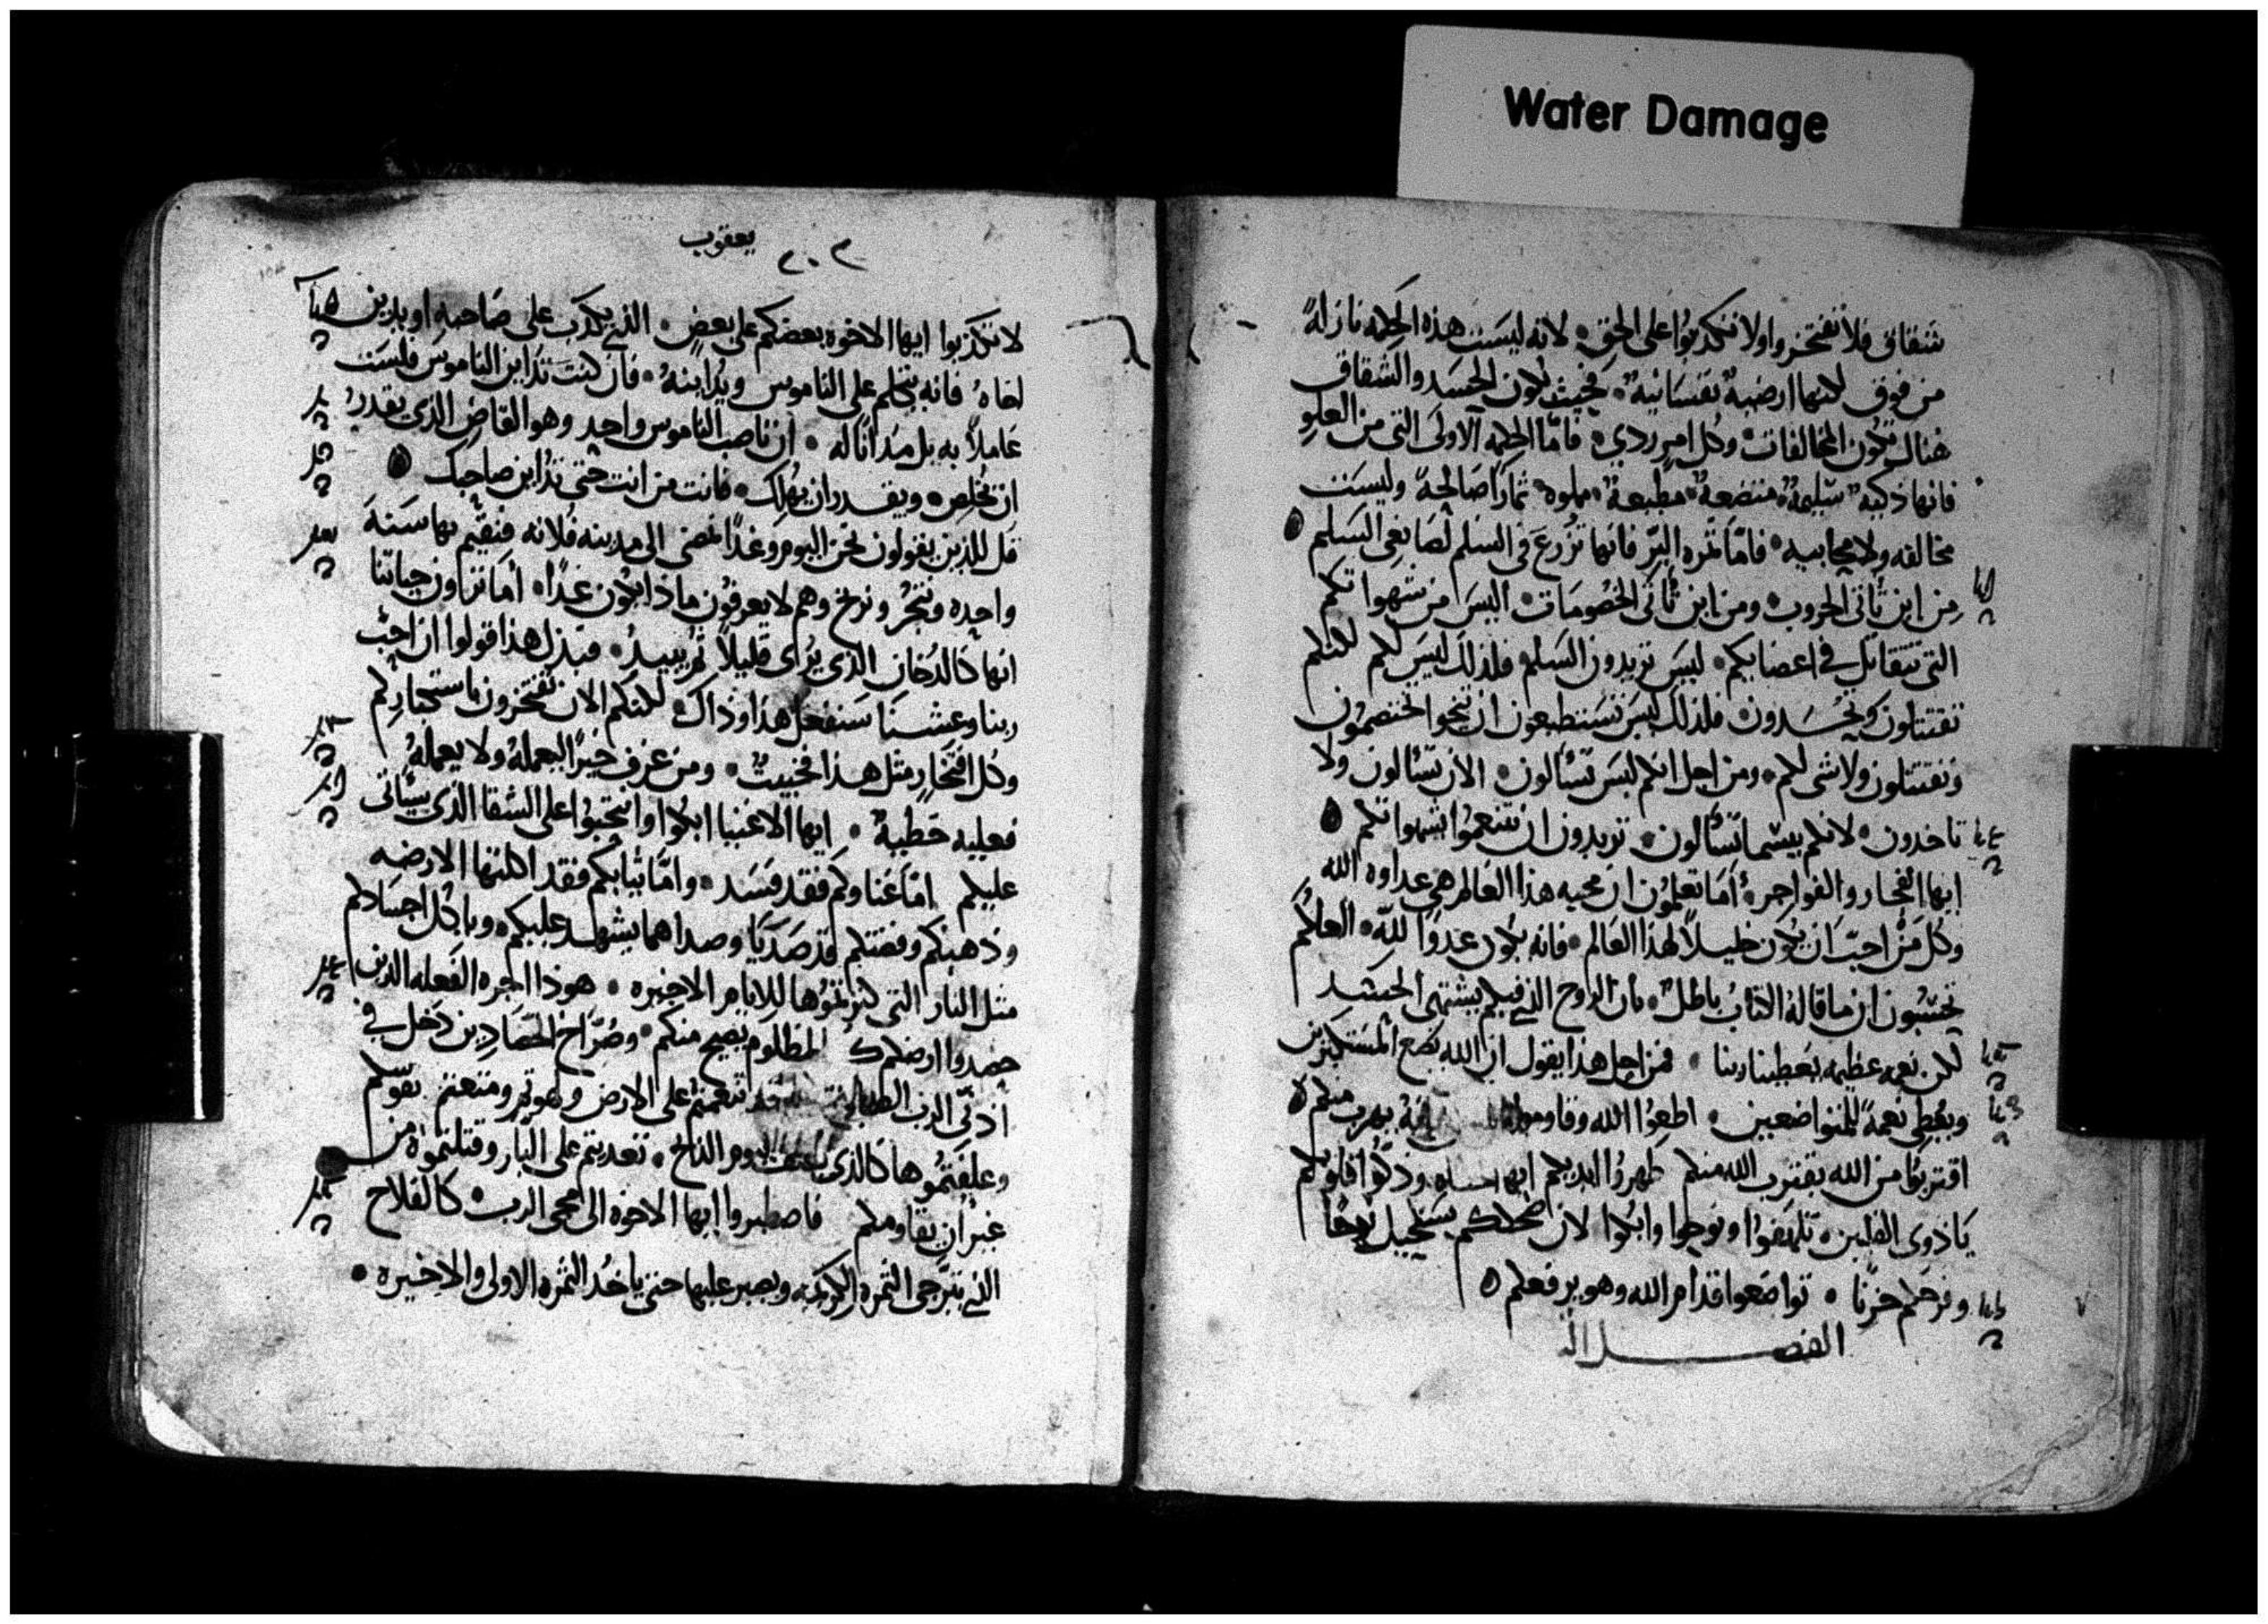 Water Damage
شقاق فلا تفتخروا ولا تكذبوا على الحق • لانه ليست هذه الحكمه نازلة
من فوق لكنها ارضية نفسانية • فحيث يكون الحسد والشقاق
هناك تكون المخالفات • وكل امر ردي • فاما الحكمه الاولى التى من العلو
فانها ذكيه سليمة متضعة مطيعة مملوه ثمارا صالحة وليست
مخالفه ولا محابيه • فاما ثمره البر فانها تزرع فى السلم لصانعى السلم
من اين تأتى الحروب • ومن اين تأتى الخصومات • اليس من شهواتكم
التى تتقاتل فى اعضايكم • ليس تريدون السلم فلذلك ليس لكم لكنكم
تقتتلون وتحسدون • فلذلك ليس تستطيعون ان تنجوا تختصمون
وتقتتلون ولا شى لكم • ومن اجل انكم ليس تسألون • الان تسألون ولا
تاخدون • لانكم بيسما تسألون • تريدون ان تتنعموا بشهواتكم
ايها الفجار والفواجر • أما تعلمون ان محبه هذا العالم هى عداوه الله
وكل من احب ان يكون خليلا لهذا العالم • فانه يكون عدوا لله • العلكم
تحتسبون ان ما قاله الكتاب باطل • بأن الروح الذي فيكم يشتهى الحسد
لكن نعمه عظيمه يعطينا ربنا • فمن اجل هذا يقول ان الله يضع المستكبرين
ويعطى نعمة للمتواضعين • اطيعوا الله وقاوموا فانه يهرب منكم
اقتربوا من الله يقترب الله منكم طهروا ايديكم ايها وذكوا قلوبكم
يا ذوى القلبين • تلهفوا ونوحوا وابكوا لان ضحككم يستحيل نوحا
وفرحكم حزنا • تواضعوا قدام الله وهو يرفعكم
الفصل
يعقوب
٢٠٢
لا تكذبوا ايها الاخوه بعضكم على بعض • الذي يكذب على صاحبه او يدين
اخاه فانه يتكلم على الناموس ويداينه • فان كنت تداين الناموس فلست
عاملا به بل مدانا له • ان ناصب الناموس واحد وهو القاضى الذى يقدر
ان يخلص • ويقدر ان يهلك • فانت من انت حتى تداين صاحبك
قل للذين يقولون نحن اليوم وغدا نمضى الى مدينه فلانه فنقيم بها سنة
واحده ونتجر ونربح وهم لا يعرفون ماذا يكون غدا • أما تراون حياتنا
انها كالدخان الذى يرى قليلا ثم يبيد • فبدل هذا قولوا ان احب
ربنا وعشنا سنفعل هذا وذاك لكنكم الان تفتخرون باستكباركم
وكل افتخار مثل هذا فخبيث • ومن عرف خيرا ليعمله ولا يعمله
فعليه خطية • ايها الاغنيا ابكوا وانتحبوا على الشقا الذى سيأتى
عليكم اما غناوكم فقد فسد • واما ثيابكم فقد اكلتها الارضه
وذهبكم وفضتكم قد صديا وصداهما يشهد عليكم • وياكل اجسادكم
مثل النار التى كنزتموها للايام الاخيره • هوذا اجره الفعله الذين
حصدوا ارضكم المظلوم يصيح منكم • وصراخ الحصادين دخل فى
اذنى الرب تنعمتم على الارض ولهوتم ومتعتم نفوسكم
وعلفتموها كالذى ليوم الذبح • تعديتم على البار وقتلتموه من
غير ان يقاومكم فاصطبروا ايها الاخوه الى مجى الرب • كالفلاح
الذي يترجى الثمره الكريمه ويصبر عليها حتى ياخد الثمره الاولى والاخيره •